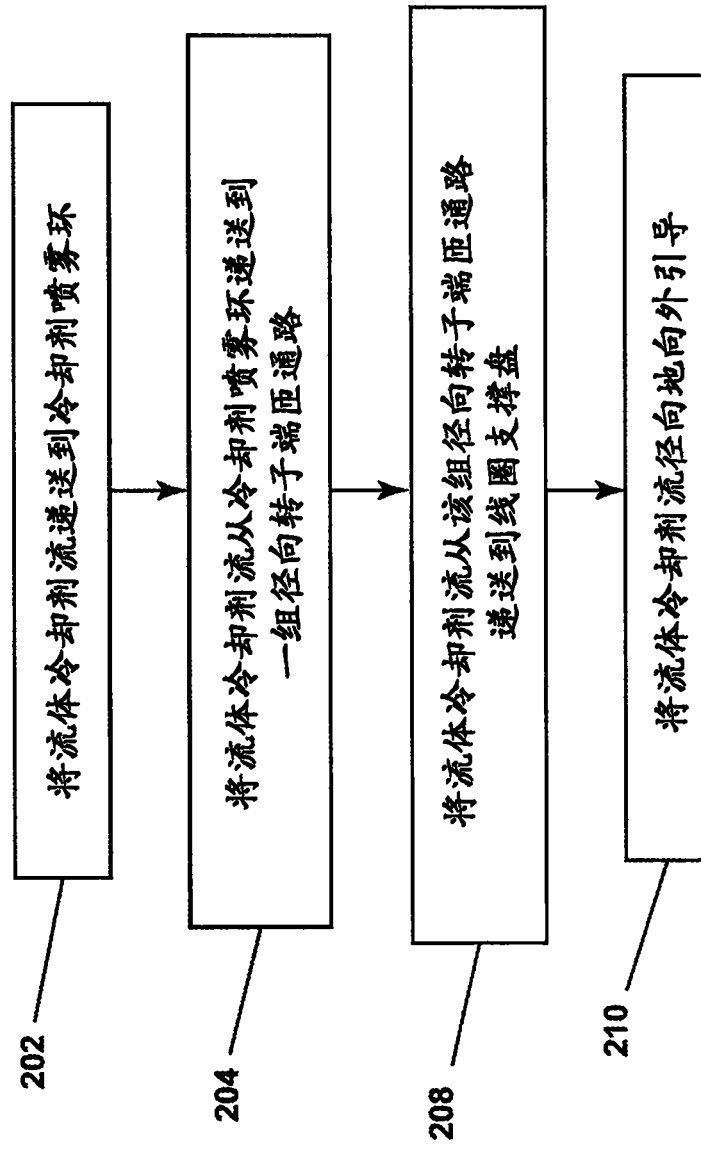 202
将流体冷却剂流递送到冷却剂喷雾环
204
将流体冷却剂流从冷却剂喷雾环递送到
一组径向转子端匝通路
208
将流体冷却剂流从该组径向转子端匝通路
递送到线圈支撑盘
210
将流体冷却剂流径向地向外引导